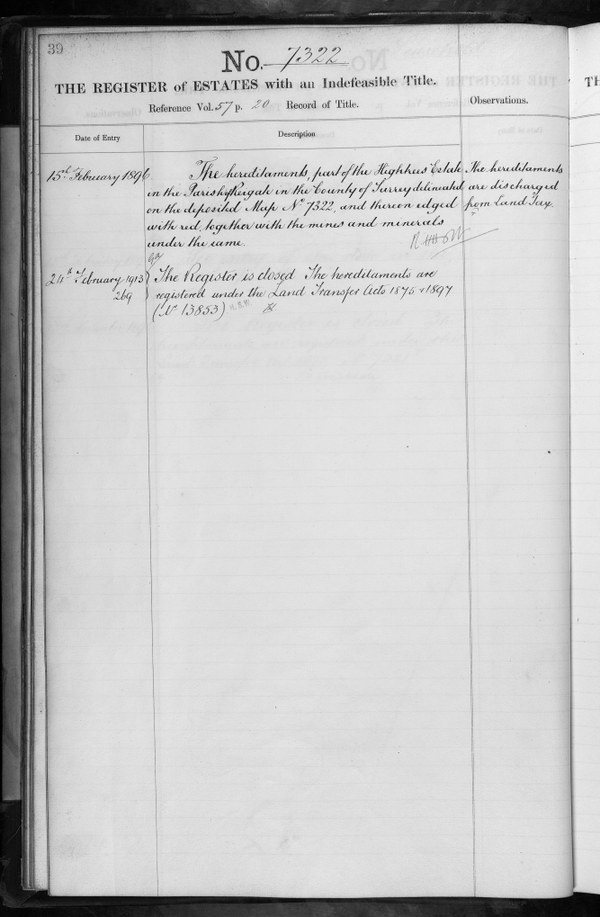 39
No. 7322
THE REGISTER of ESTATES with an Indefeasible Title.
Reference Vol. 57 p. 20 Record of Title.
Observations.
Date of Entry
Description
15th February 1896
The hereditaments, part of the Highlees Estate
in the Parish of Reigate in the County of Surrey delineated
on the deposited Map No 7322, and thereon edged
with red, together with the mines and minerals
under the same.
The hereditaments
are discharged
from Land Tax.
24th February 1913
269
The Register is closed The hereditaments are
registered under the Land Transfer Acts 1875 & 1897
(No 13853)